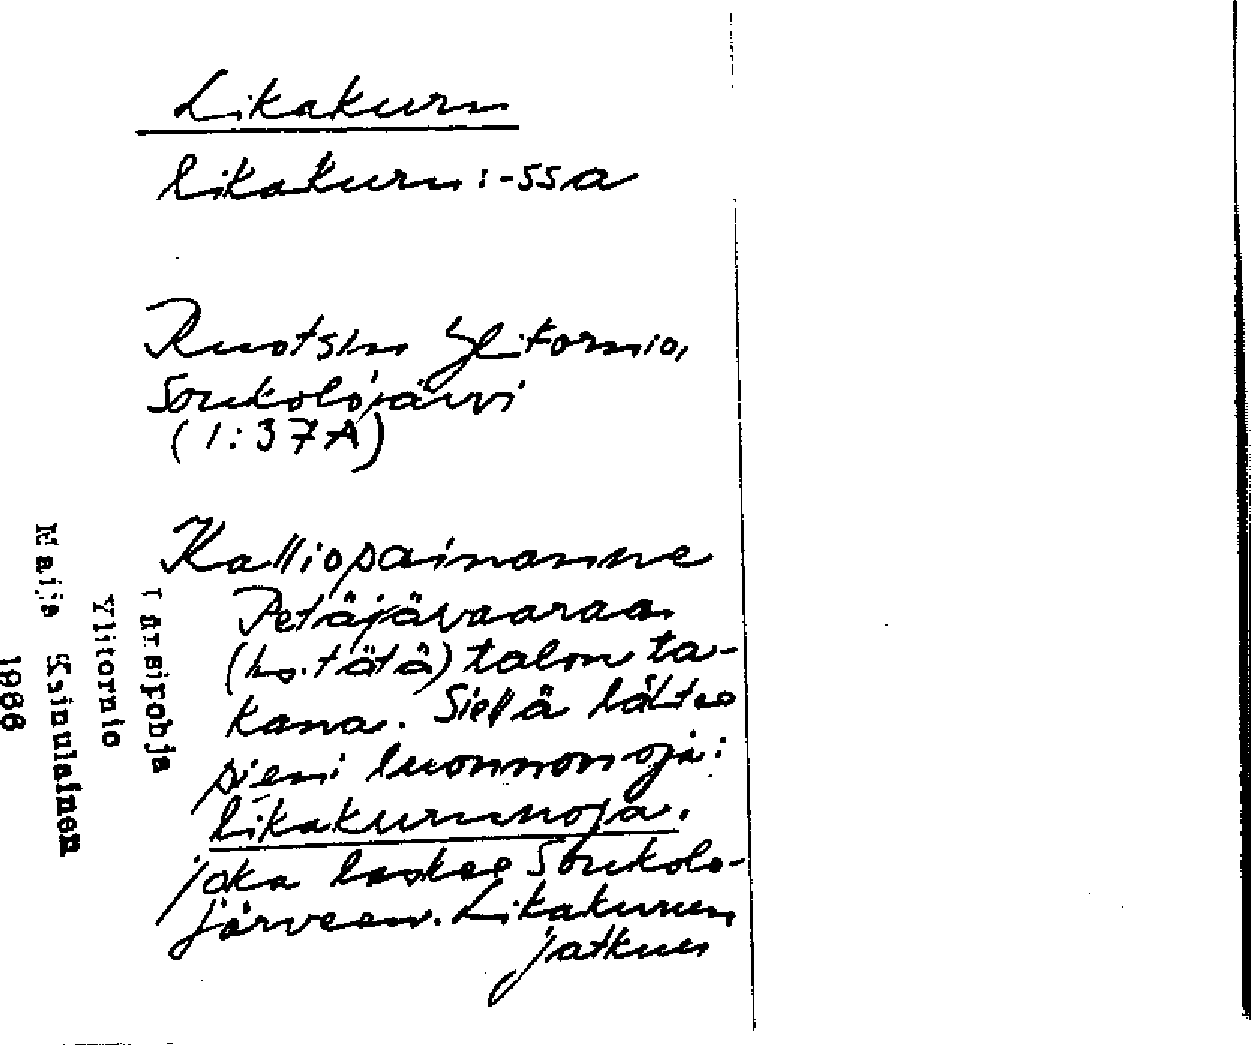 Likakuru
likakuru:-ssa
Ruotsin Ylitornio,
Soukolojärvi
(1:37A)
Kalliopainanne
Petäjävaaraan
(ks. tätä) talon ta-
kana. Siellä lähtee
pieni luonnonoja:
likakurunoja.
joka laskee Soukolo-
järveen. Likakurun
jatkuu
Länsipohja
Ylitornio
Maija Kainulainen
1986